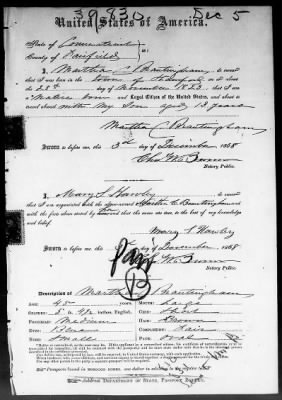 39830 Dec 5
United States of America.
State of Connecticut
County of Fairfield
I, Martha C Brantingham, do swear
that I was born in the Town of Stamford, on or about
the 28th day of November 1823, that I am a
Native born and Loyal Citizen of the United States, and about to
travel abroad with my Son aged 13 years
Martha C Brantingham
Sworn to before me this 3rd day of December 1868
Notary Public.
I, Mary S Hawley, do swear
that I am acquainted with the above named Martha C Brantingham and
with the facts above stated by her and that the same are true, to the best of my knowledge
and belief.
Mary S Hawley
Sworn to before me this day of December 1868
Notary Public.
13
Description of Martha C Brantingham
Age: 45
Mouth: Large
Stature: 5 ft 4 1/2 inches, English.
Chin: Short
Forehead: Medium
Hair: Brown
Eyes: Blue
Complexion: Fair
Nose: Small
Face: Oval
Address Department of State, Passport Bureau.